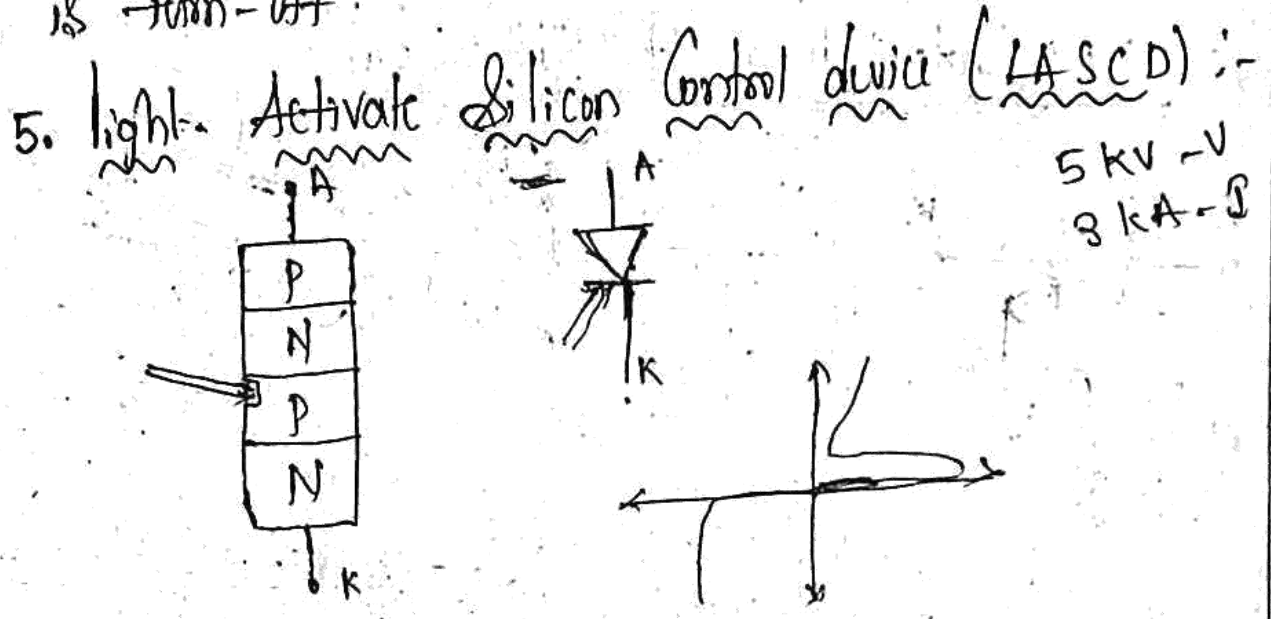 is turn-off.
5. light. Activate Silicon Control device (LASCD) :-
5 kV - V
3 kA - I
A
P
N
P
N
K
A
K